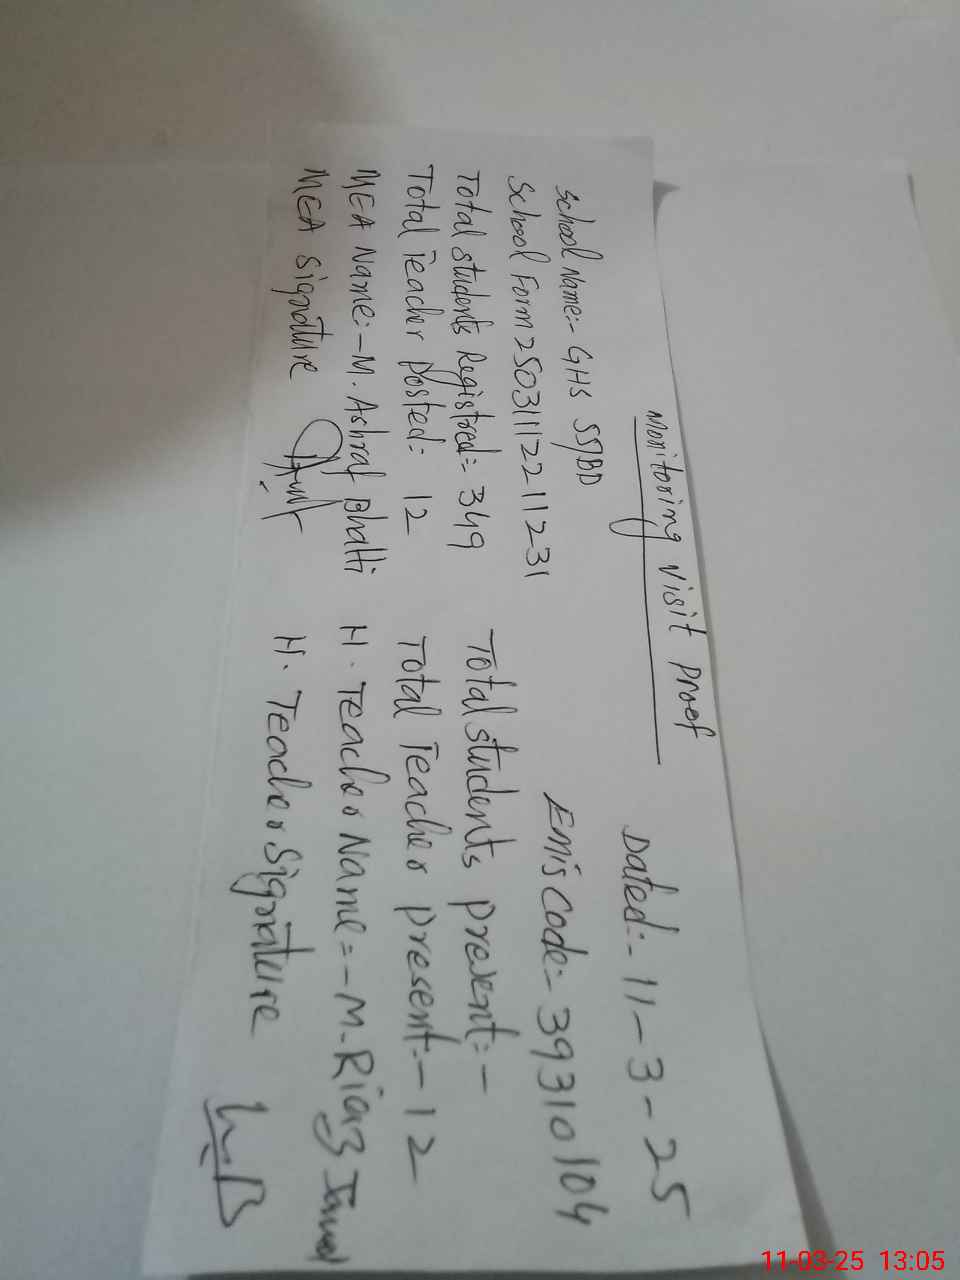 Monitoring visit Proof
Dated:- 11-3-25
School Name:- GHS 55/BD
Emis Code:- 39310104
School Form 250311122111231
Total students Registred:- 349
Total students present:-
Total Teacher Posted:- 12
Total Teacher present:- 12
MEA Name:- M. Ashraf Bhatti
H. Teacher Name:- M. Riaz
MEA signature
H. Teacher Signature
11-03-25 13:05